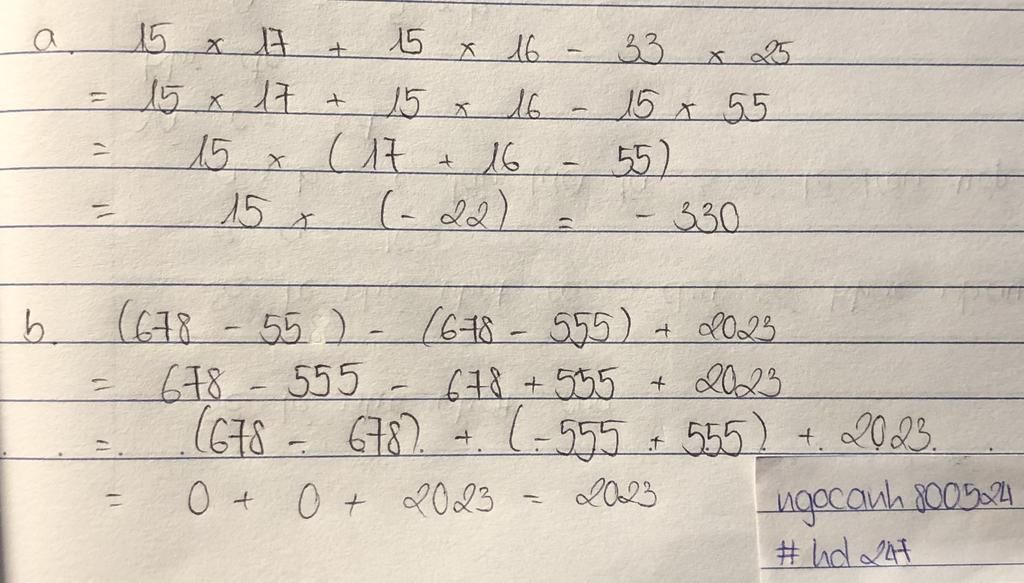 a. 15 x 17 + 15 x 16 - 33 x 25
= 15 x 17 + 15 x 16 - 15 x 55
= 15 x (17 + 16 - 55)
= 15 x (- 22) = - 330
b. (678 - 55 ) - (678 - 555) + 2023
= 678 - 555 - 678 + 555 + 2023
= (678 - 678) + (-555 + 555) + 2023
= 0 + 0 + 2023 = 2023
ngocanh800524
# hd247